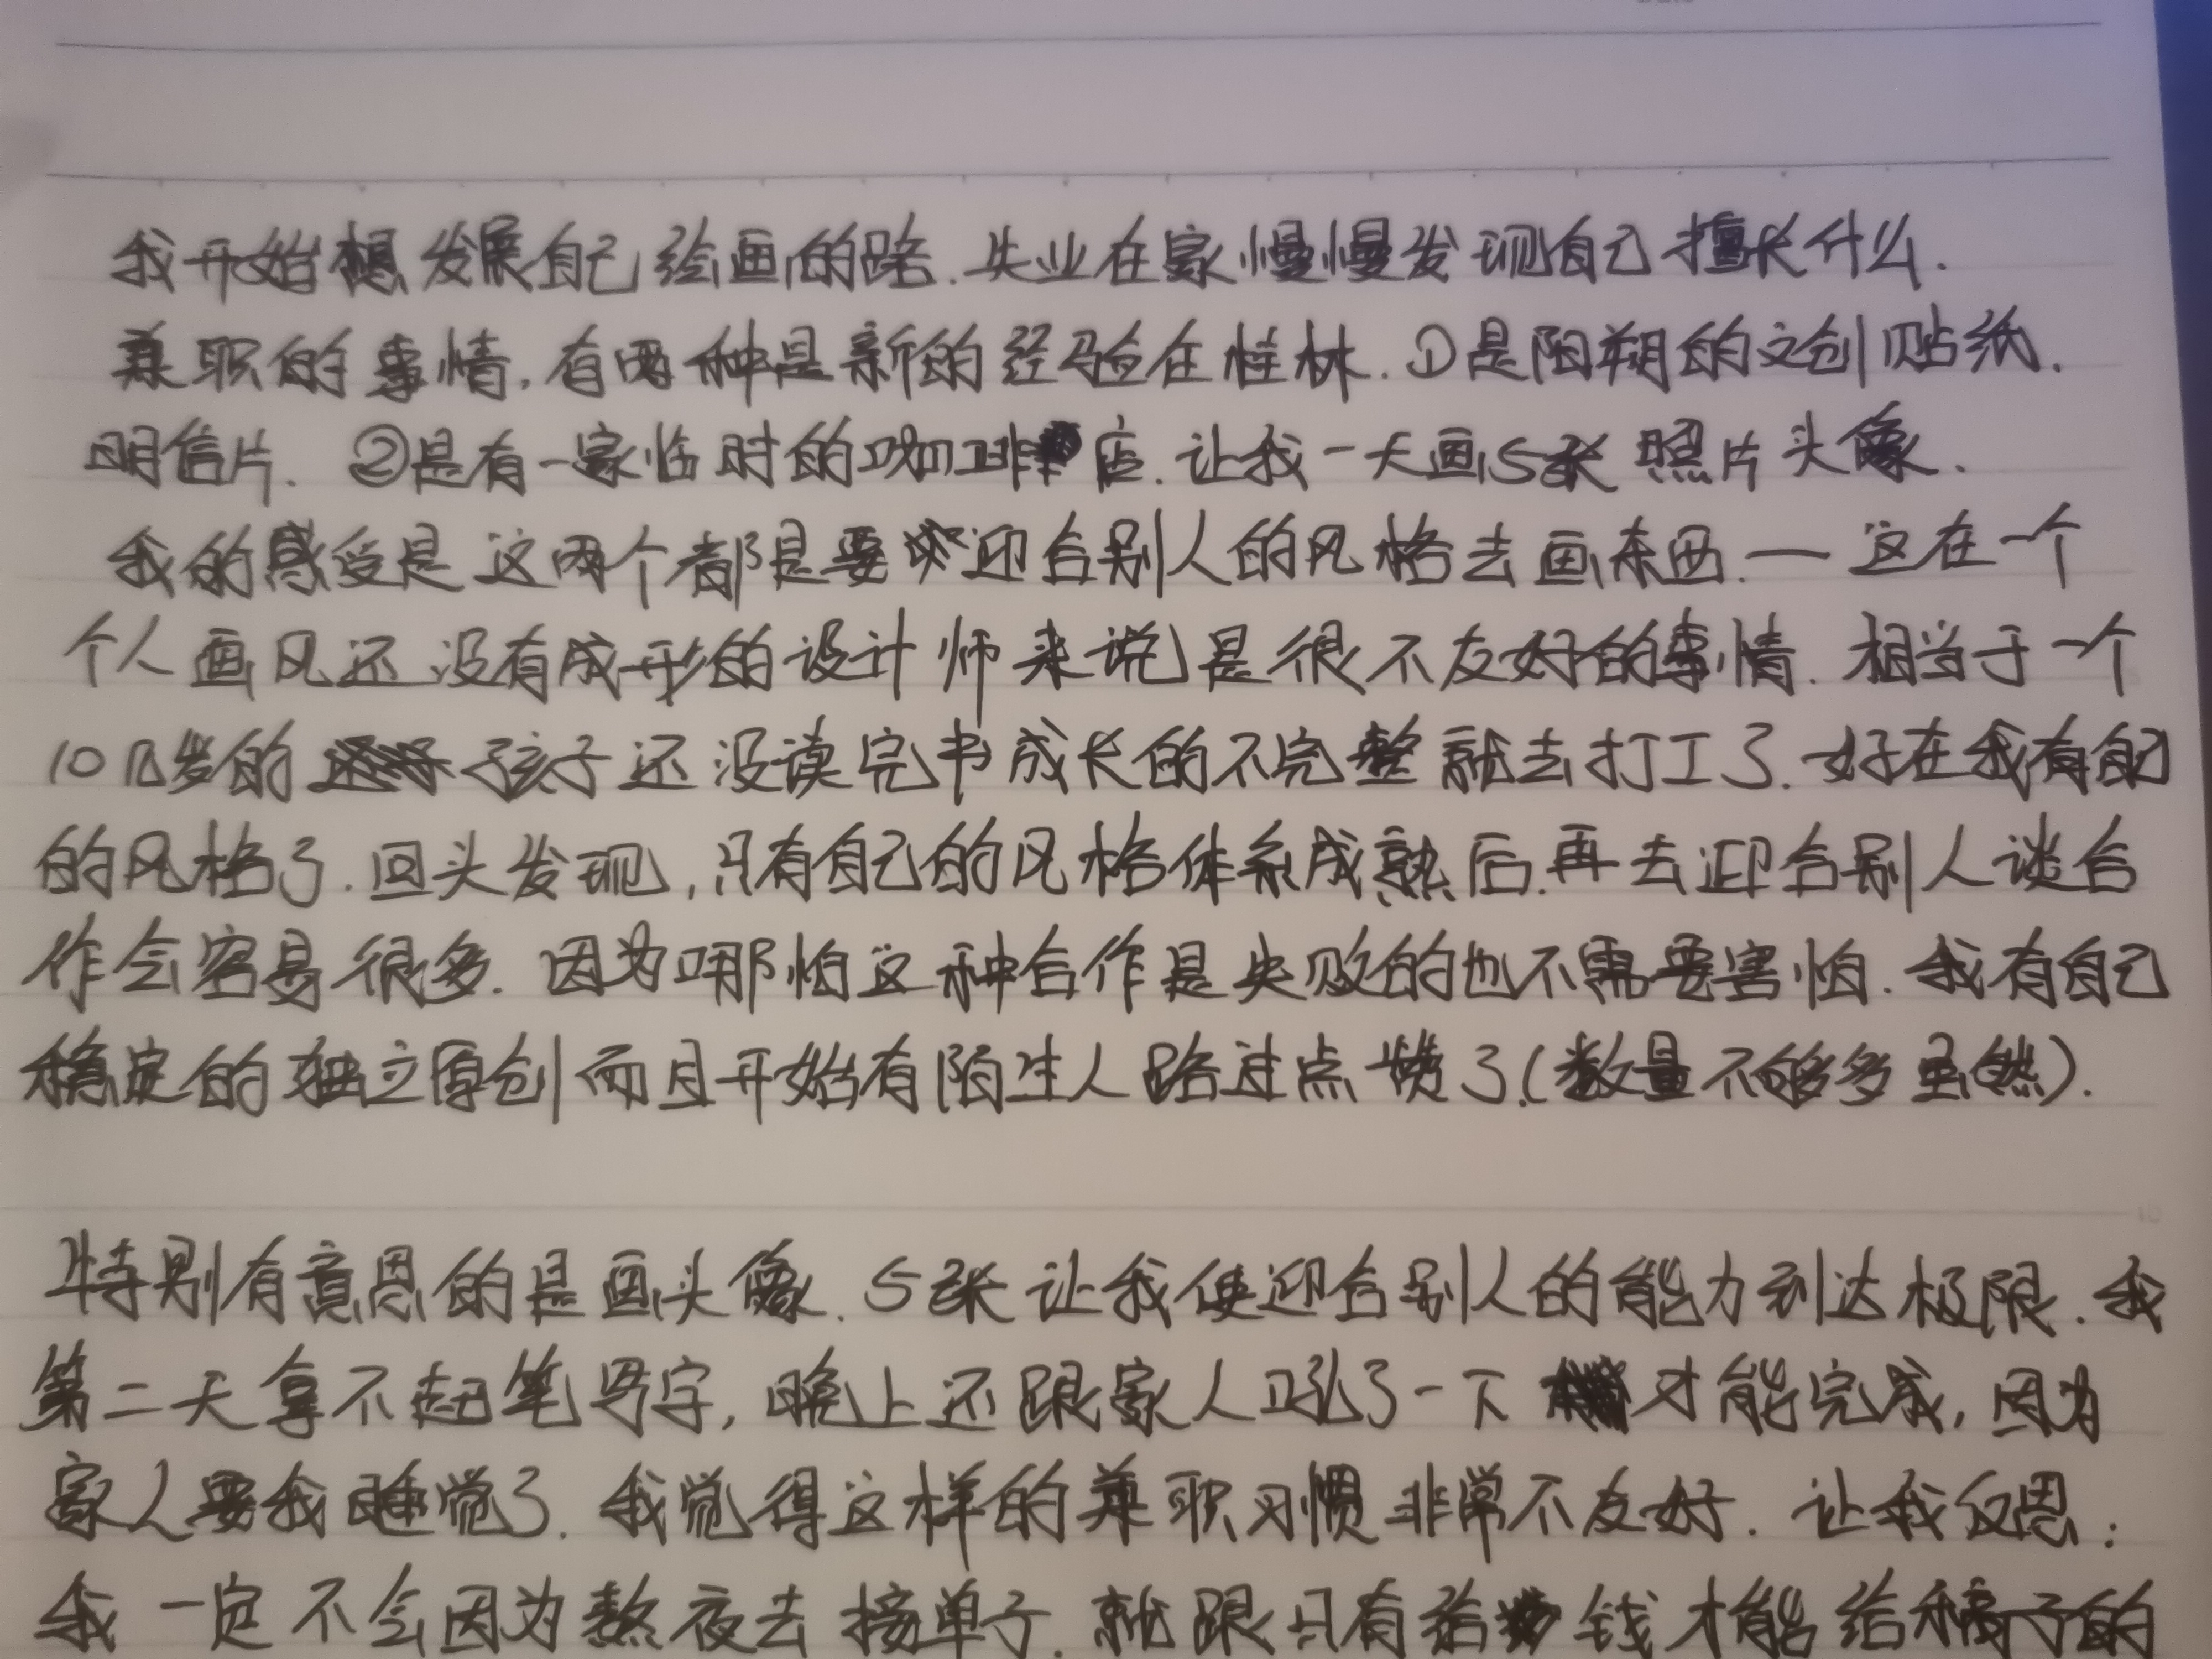 我开始想发展自己绘画的路.失业在家慢慢发现自己擅长什么.
兼职的事情,有两种是新的经验在桂林.①是阳朔的文创贴纸.
明信片. ②是有一家临时的咖啡店.让我一天画5张照片头像.
我的感受是这两个都是要求迎合别人的风格去画东西.—这在一个
个人画风还没有成形的设计师来说是很不友好的事情.相当于一个
10几岁的孩子还没读完书成长的不完整就去打工了.好在我有自己
的风格了.回头发现,只有自己的风格体系成熟后.再去迎合别人谈合
作会容易很多.因为哪怕这种合作是失败的也不需要害怕.我有自己
稳定的独立原创而且开始有陌生人路过点赞了.(数量不够多虽然).
特别有意思的是画头像.5张让我使迎合别人的能力到达极限.我
第二天拿不起笔写字,晚上还跟家人吼了一下才能完成,因为
家人要我睡觉了.我觉得这样的兼职习惯非常不友好.让我反思:
我一定不会因为熬夜去接单子.就跟只有给钱才能给稿子的